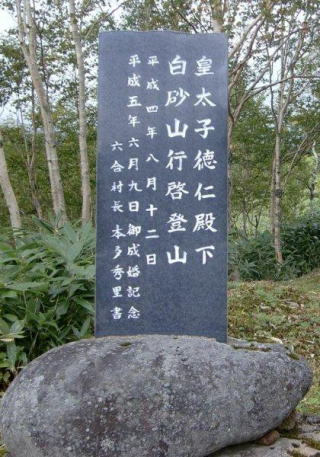 皇太子徳仁殿下
白砂山行啓登山
平成四年八月十二日
平成五年六月九日御成婚記念
六合村長本多秀里書